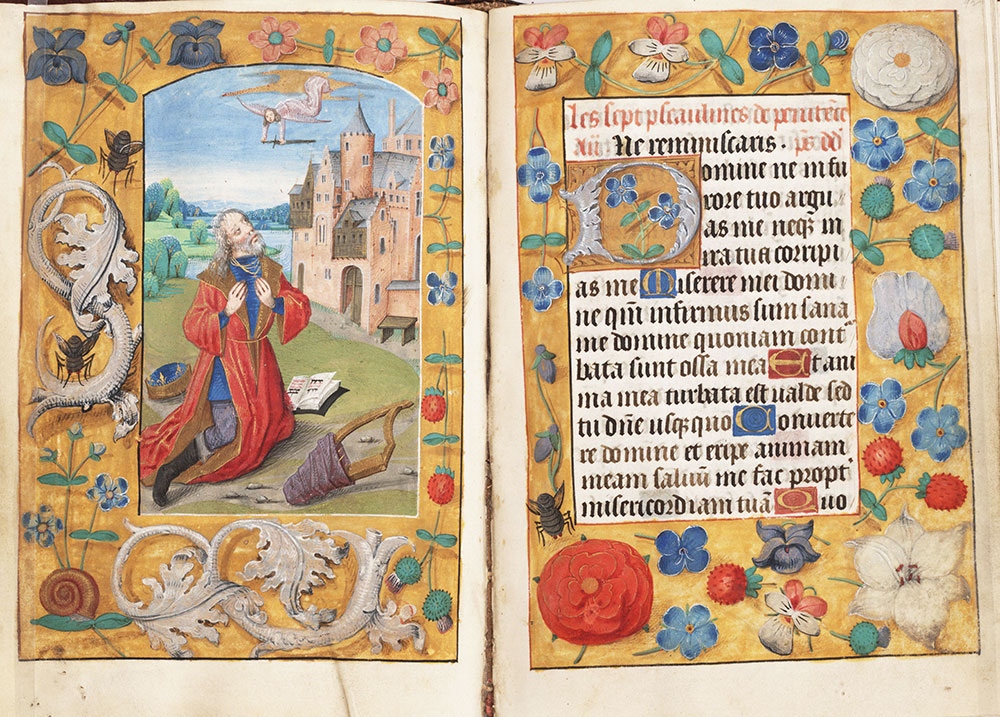 Les sept pseaulmes de penitēce
Añ Ne reminiscaris. ps dd
Domine ne in fu
rore tuo argu
as me neq̢ in
ira tua corripi
as me Miserere mei domi
ne qm̄ infirmus sum sana
me domine quoniam contʳ
bata sunt ossa mea Et ani
ma mea turbata est valde sed
tu dn̄e usq̢ quo Conuerte
re domine et eripe animam
meam saluū me fac propt'
misericordiam tuā Quo